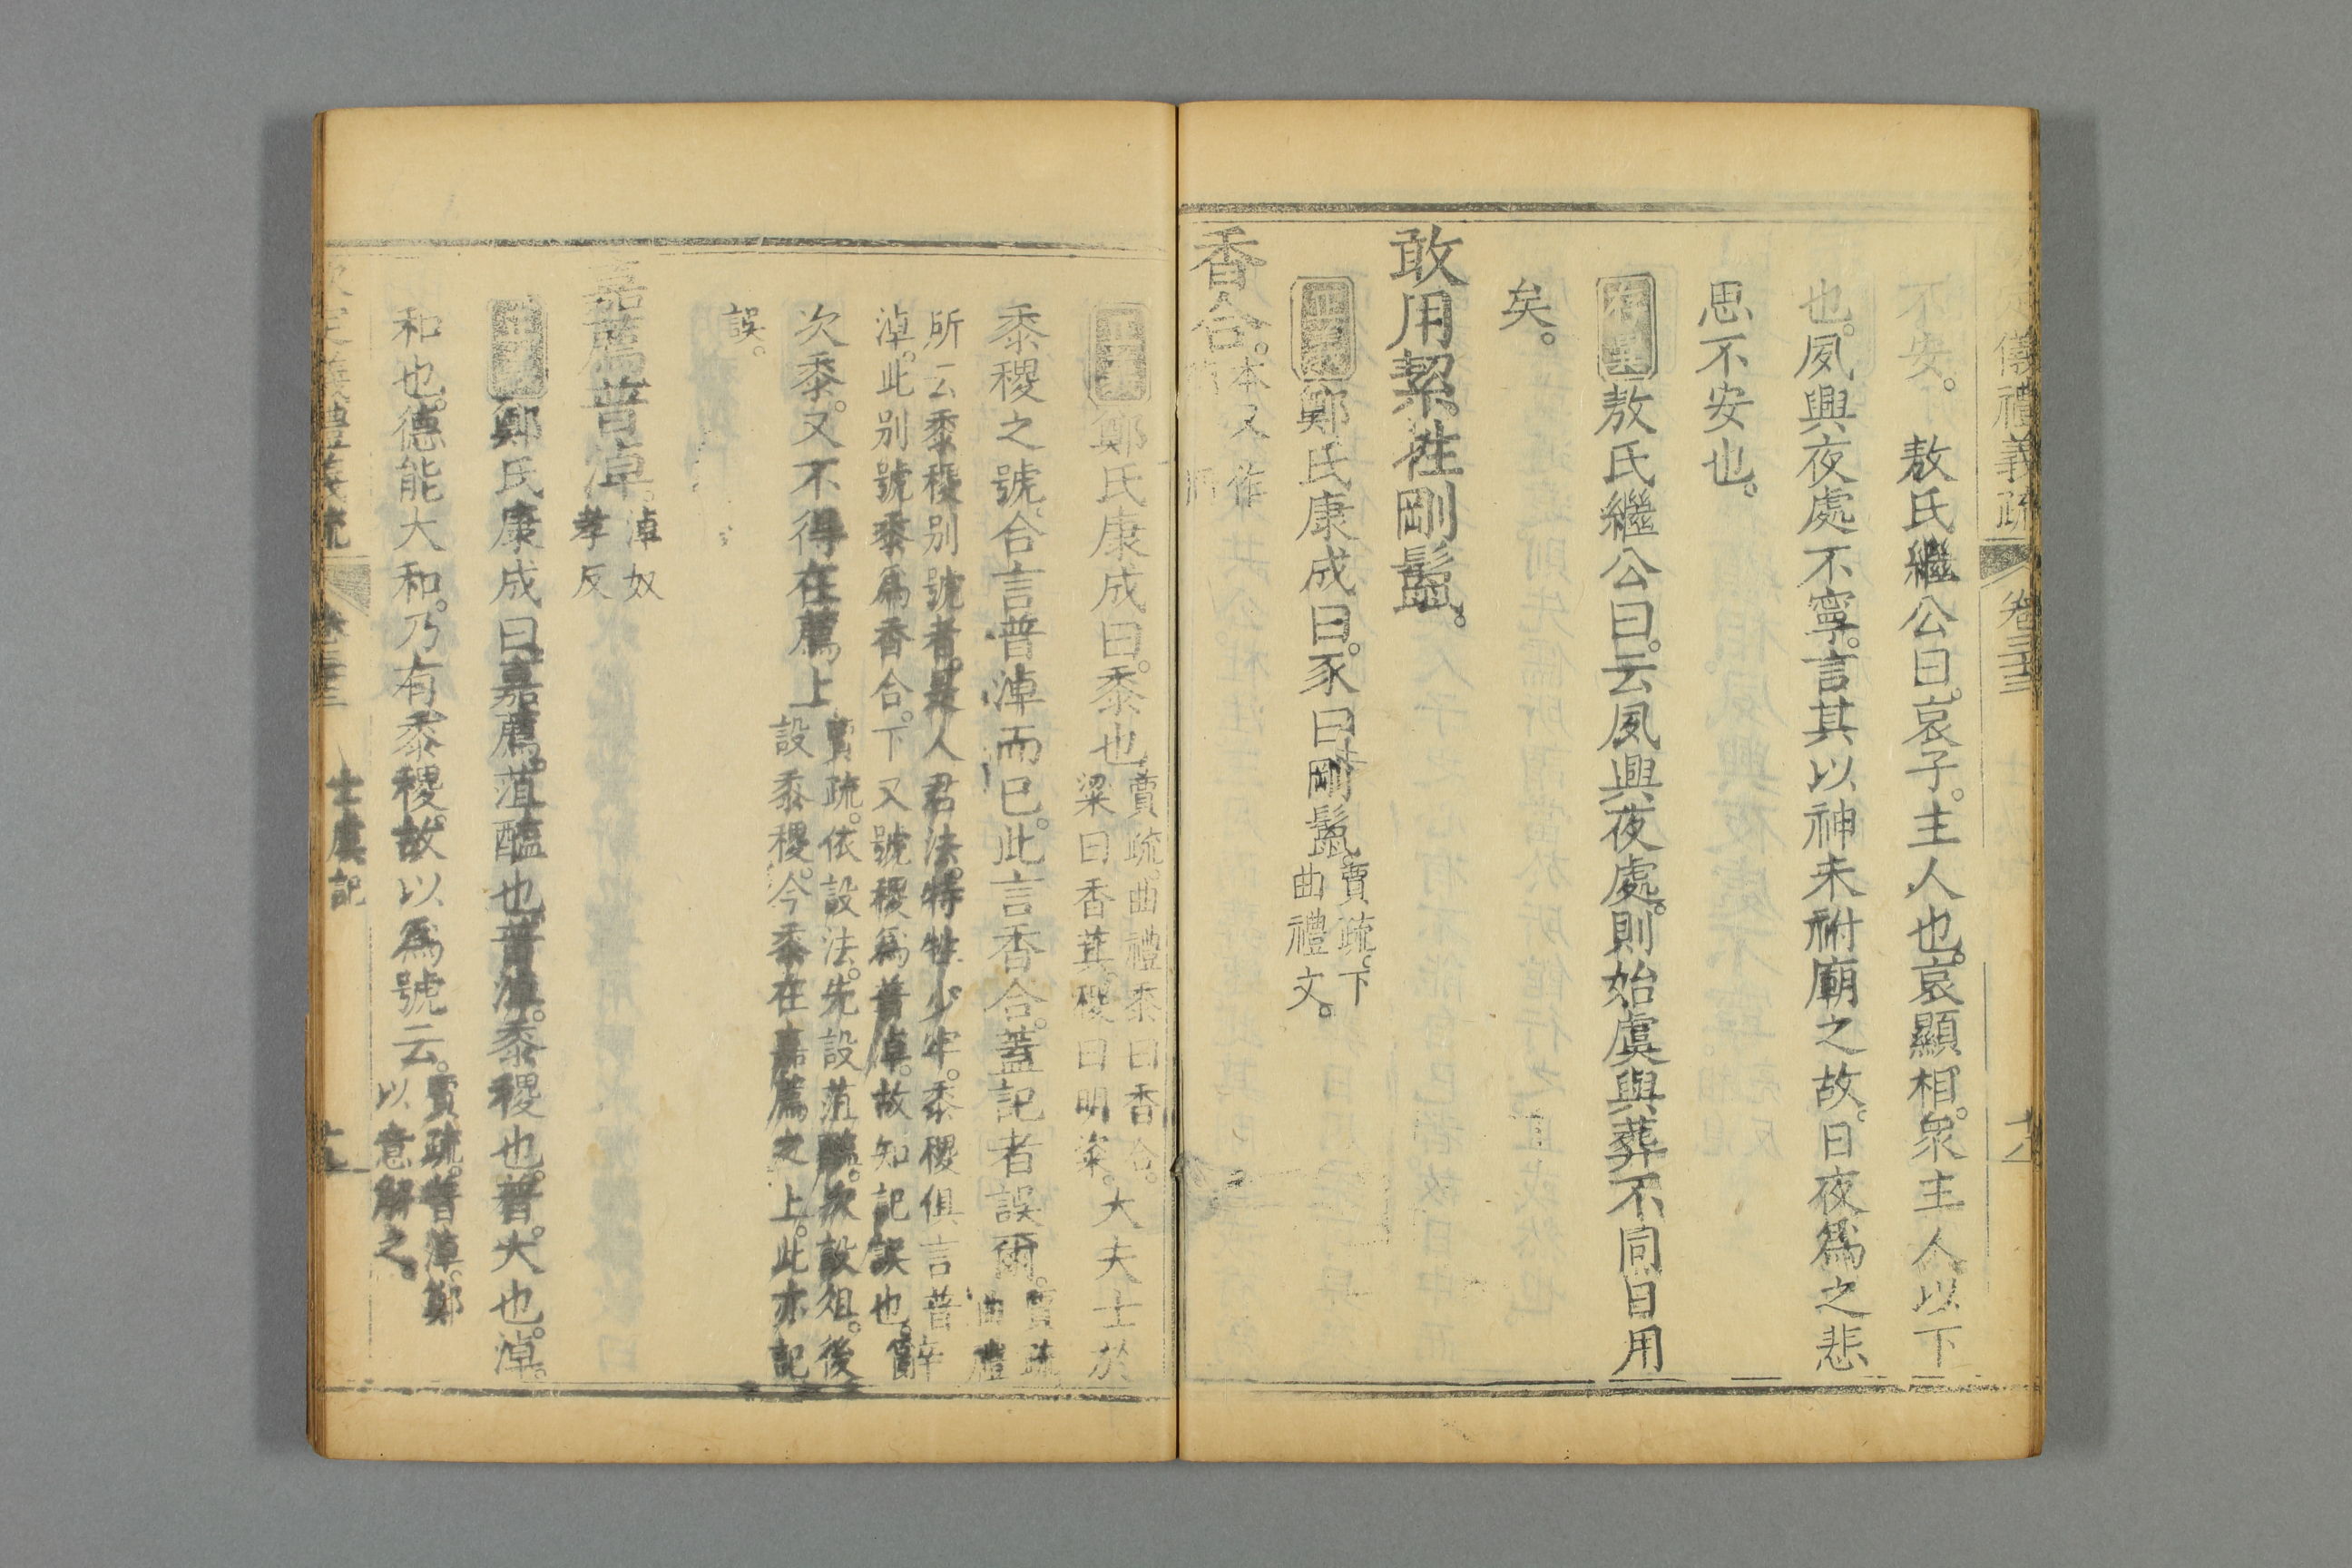 儀禮義疏 卷三十三
不安。 敖氏繼公曰。哀子。主人也。哀顯相。衆主人以下
也。夙興夜處不寧。言其以神未祔廟之故。日夜爲之悲
思不安也。
存異 敖氏繼公曰。云夙興夜處。則始虞與葬不同日用
矣。
敢用絜牲剛鬣。
正義 鄭氏康成曰。豕曰剛鬣。
賈疏。下
曲禮文。
香合。
本又作
正義 鄭氏康成曰。黍也。
賈疏。曲禮黍曰香合。
粱曰香萁。稷曰明粢。
大夫士於
黍稷之號。合言普淖而已。此言香合。蓋記者誤爾。
賈疏
曲禮
所云黍稷别號者。是人君法。特牲少牢。黍稷俱言普
淖。此别號黍爲香合。下又號稷爲普淖。故知記誤也。辭
次黍。又不得在薦上
賈疏。依設法。先設菹醢。次設俎。後
設黍稷。今黍在嘉薦之上。此亦記
誤。
嘉薦普淖。
淖奴
孝反
正義 鄭氏康成曰。嘉薦。菹醢也。普淖。黍稷也。普。大也。淖。
和也。德能大和。乃有黍稷。故以爲號云。
賈疏。普淖。鄭
以意解之。
禮義疏 卷三十三 士虞記